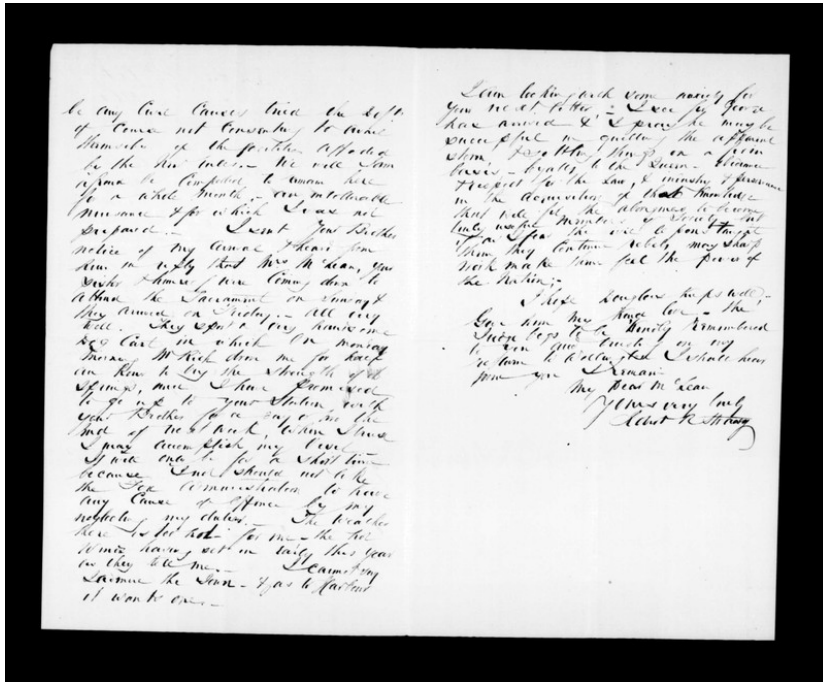 be any Civil Causes tried the Defts
of Course not Consenting to avail
themselves of the facilities afforded
by the New rules. - We will I am
afraid be Compelled to remain here
for a whole month - an intolerable
nuisance & for which I was not
prepared. - I sent your Brother
notice of my arrival & hear from
him in reply that Mrs McLean, your
Sister & himself were Coming down to
attend the Sacrament on Sunday &
they arrived on Friday. - all very
well. They sport a very handsome
Dog Cart in which on Monday
Morning Mr drove me for half
an hour to try the strength of the
Springs, and I have promised
to go up to your Station with
your Brother for a day or in the
end of next week, When I trust
I may accomplish my
It will only be for a short time
because I should not like
the Fox administration to have
any Cause of offence by my
neglecting my duties. - The Weather
here is too hot for me - the hot
winds having set in early this year
as they tell me. - I cannot say
I admire the Town - & as to Harbour
it wants one. -
I am looking with some anxiety for
your next letter: - I see Sir George
has arrived & I pray he may be
successful in quelling the
& settling things on a firm
basis, - loyalty to the Queen - obedience
& respect for the Law, & industry & perseverance
in the acquisition of that Knowledge
that will fit the aborigines to become
truly useful Members of Society - but
if as I fear the
them they Continue rebels, may sharp
work make them feel the power of
the Nation; -
I hope Douglas keeps well, -
Give him my kind love - the
Judge begs to be kindly remembered
to you and on my
return to Wellington I should hear
from you I Remain
My Dear McLean
Yours very truly
Robert R Strang